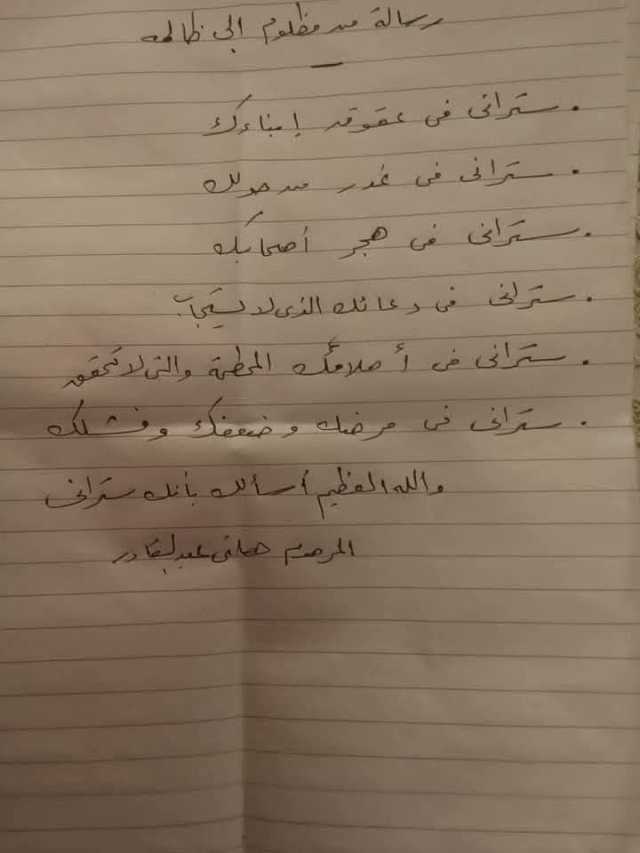 رسالة من مظلوم إلى ظالمه
. سترانى فى عقوقه إبناءك
. سترانى فى غدر من حولك
. سترانى فى هجر أصحابك
. سترانى فى دعائك الذى لا يستجاب
. سترانى فى أحلامك المحطمة والتى لا تتحقق
. سترانى فى مرضك وضعفك وفشلك
والله العظيم أسألك بأنك سترانى
المرحوم هانى عبد القادر